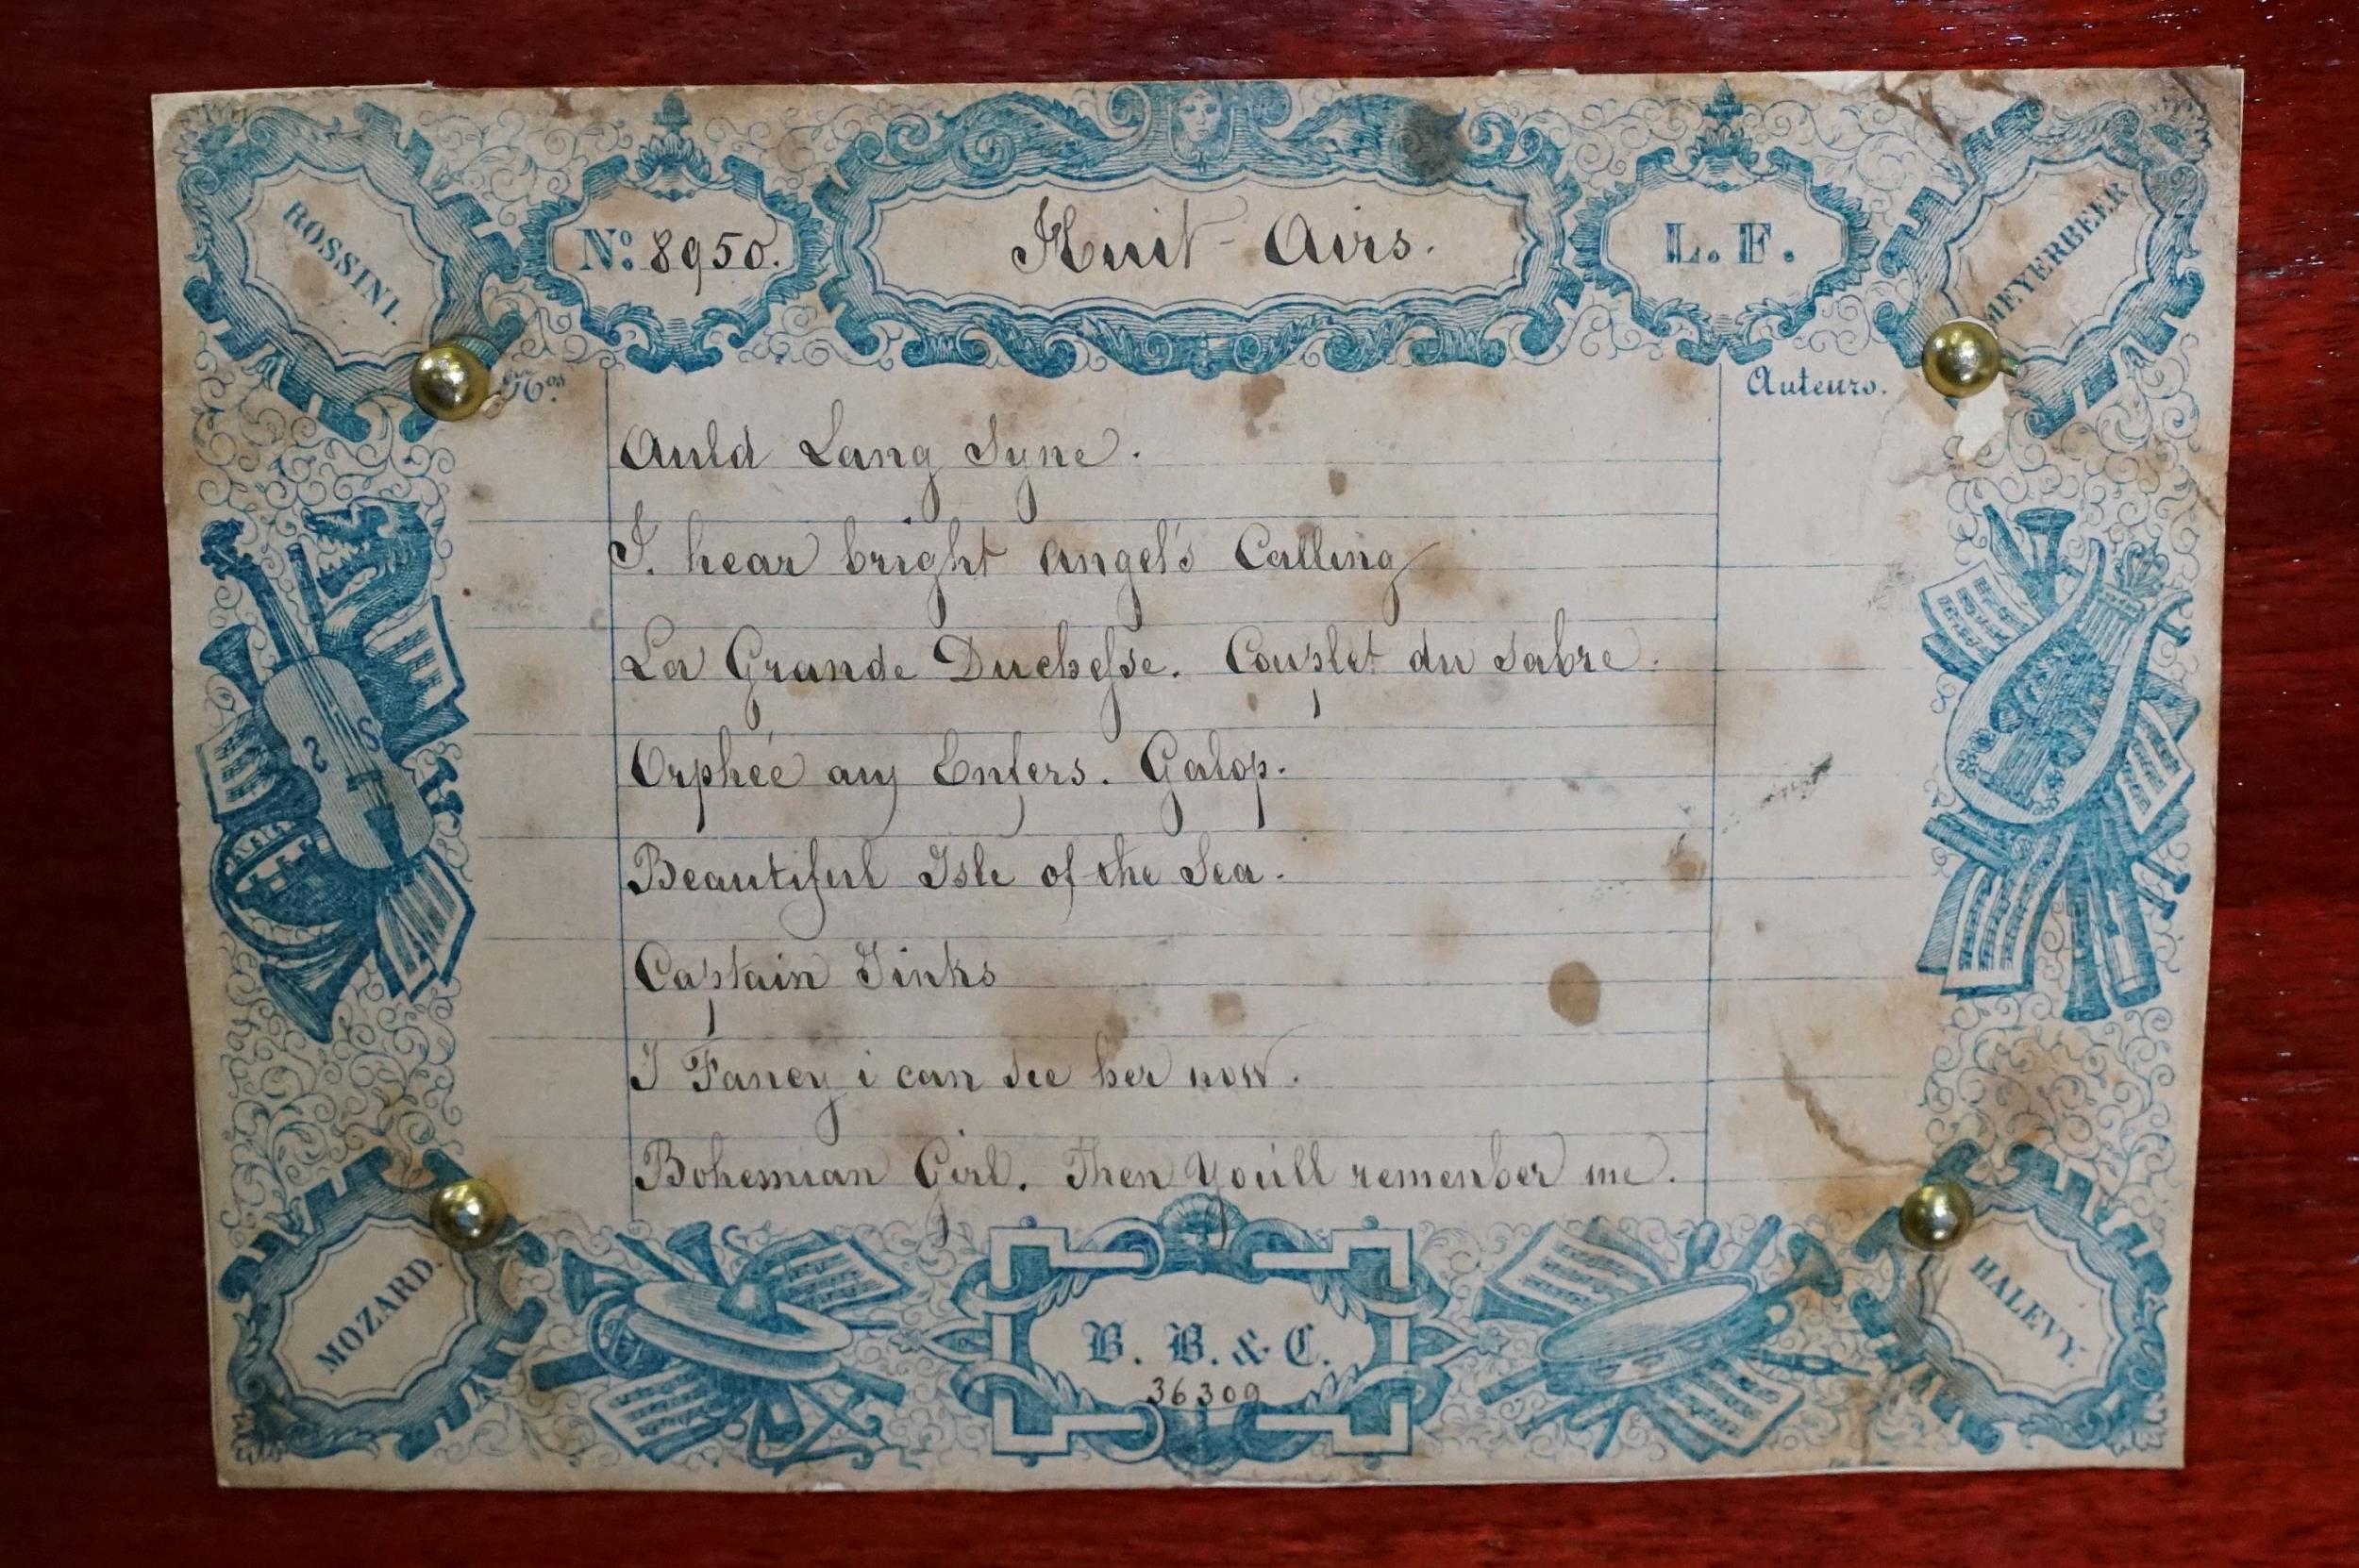 ROSSINI.
No. 8950.
Huit Airs.
L. F.
MEYERBEER
Nos.
Auteurs.
Auld Lang Syne.
I. hear bright angel's Calling
La Grande Duchesse. Couplet du Sabre.
Orphée aux Enfers. Galop.
Beautiful Isle of the Sea.
Captain Jinks
I Fancy i can see her now.
Bohemian Girl. Then You'll remember me.
MOZARD.
B. B. & C.
36309
HALEVY.